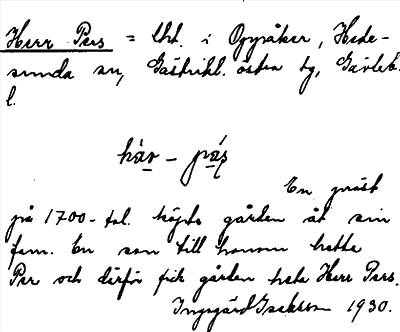 Herr Pers = lht. i Oppåker, Hede-
sunda sn, Gästrikl. östra tg, Gävleb.
l.
här - pás
En präst
på 1700-tal. köpte gården åt sin
fam. En son till honom hette
Per och därför fick gården heta Herr Pers.
Ingegärd Isaksson 1930.